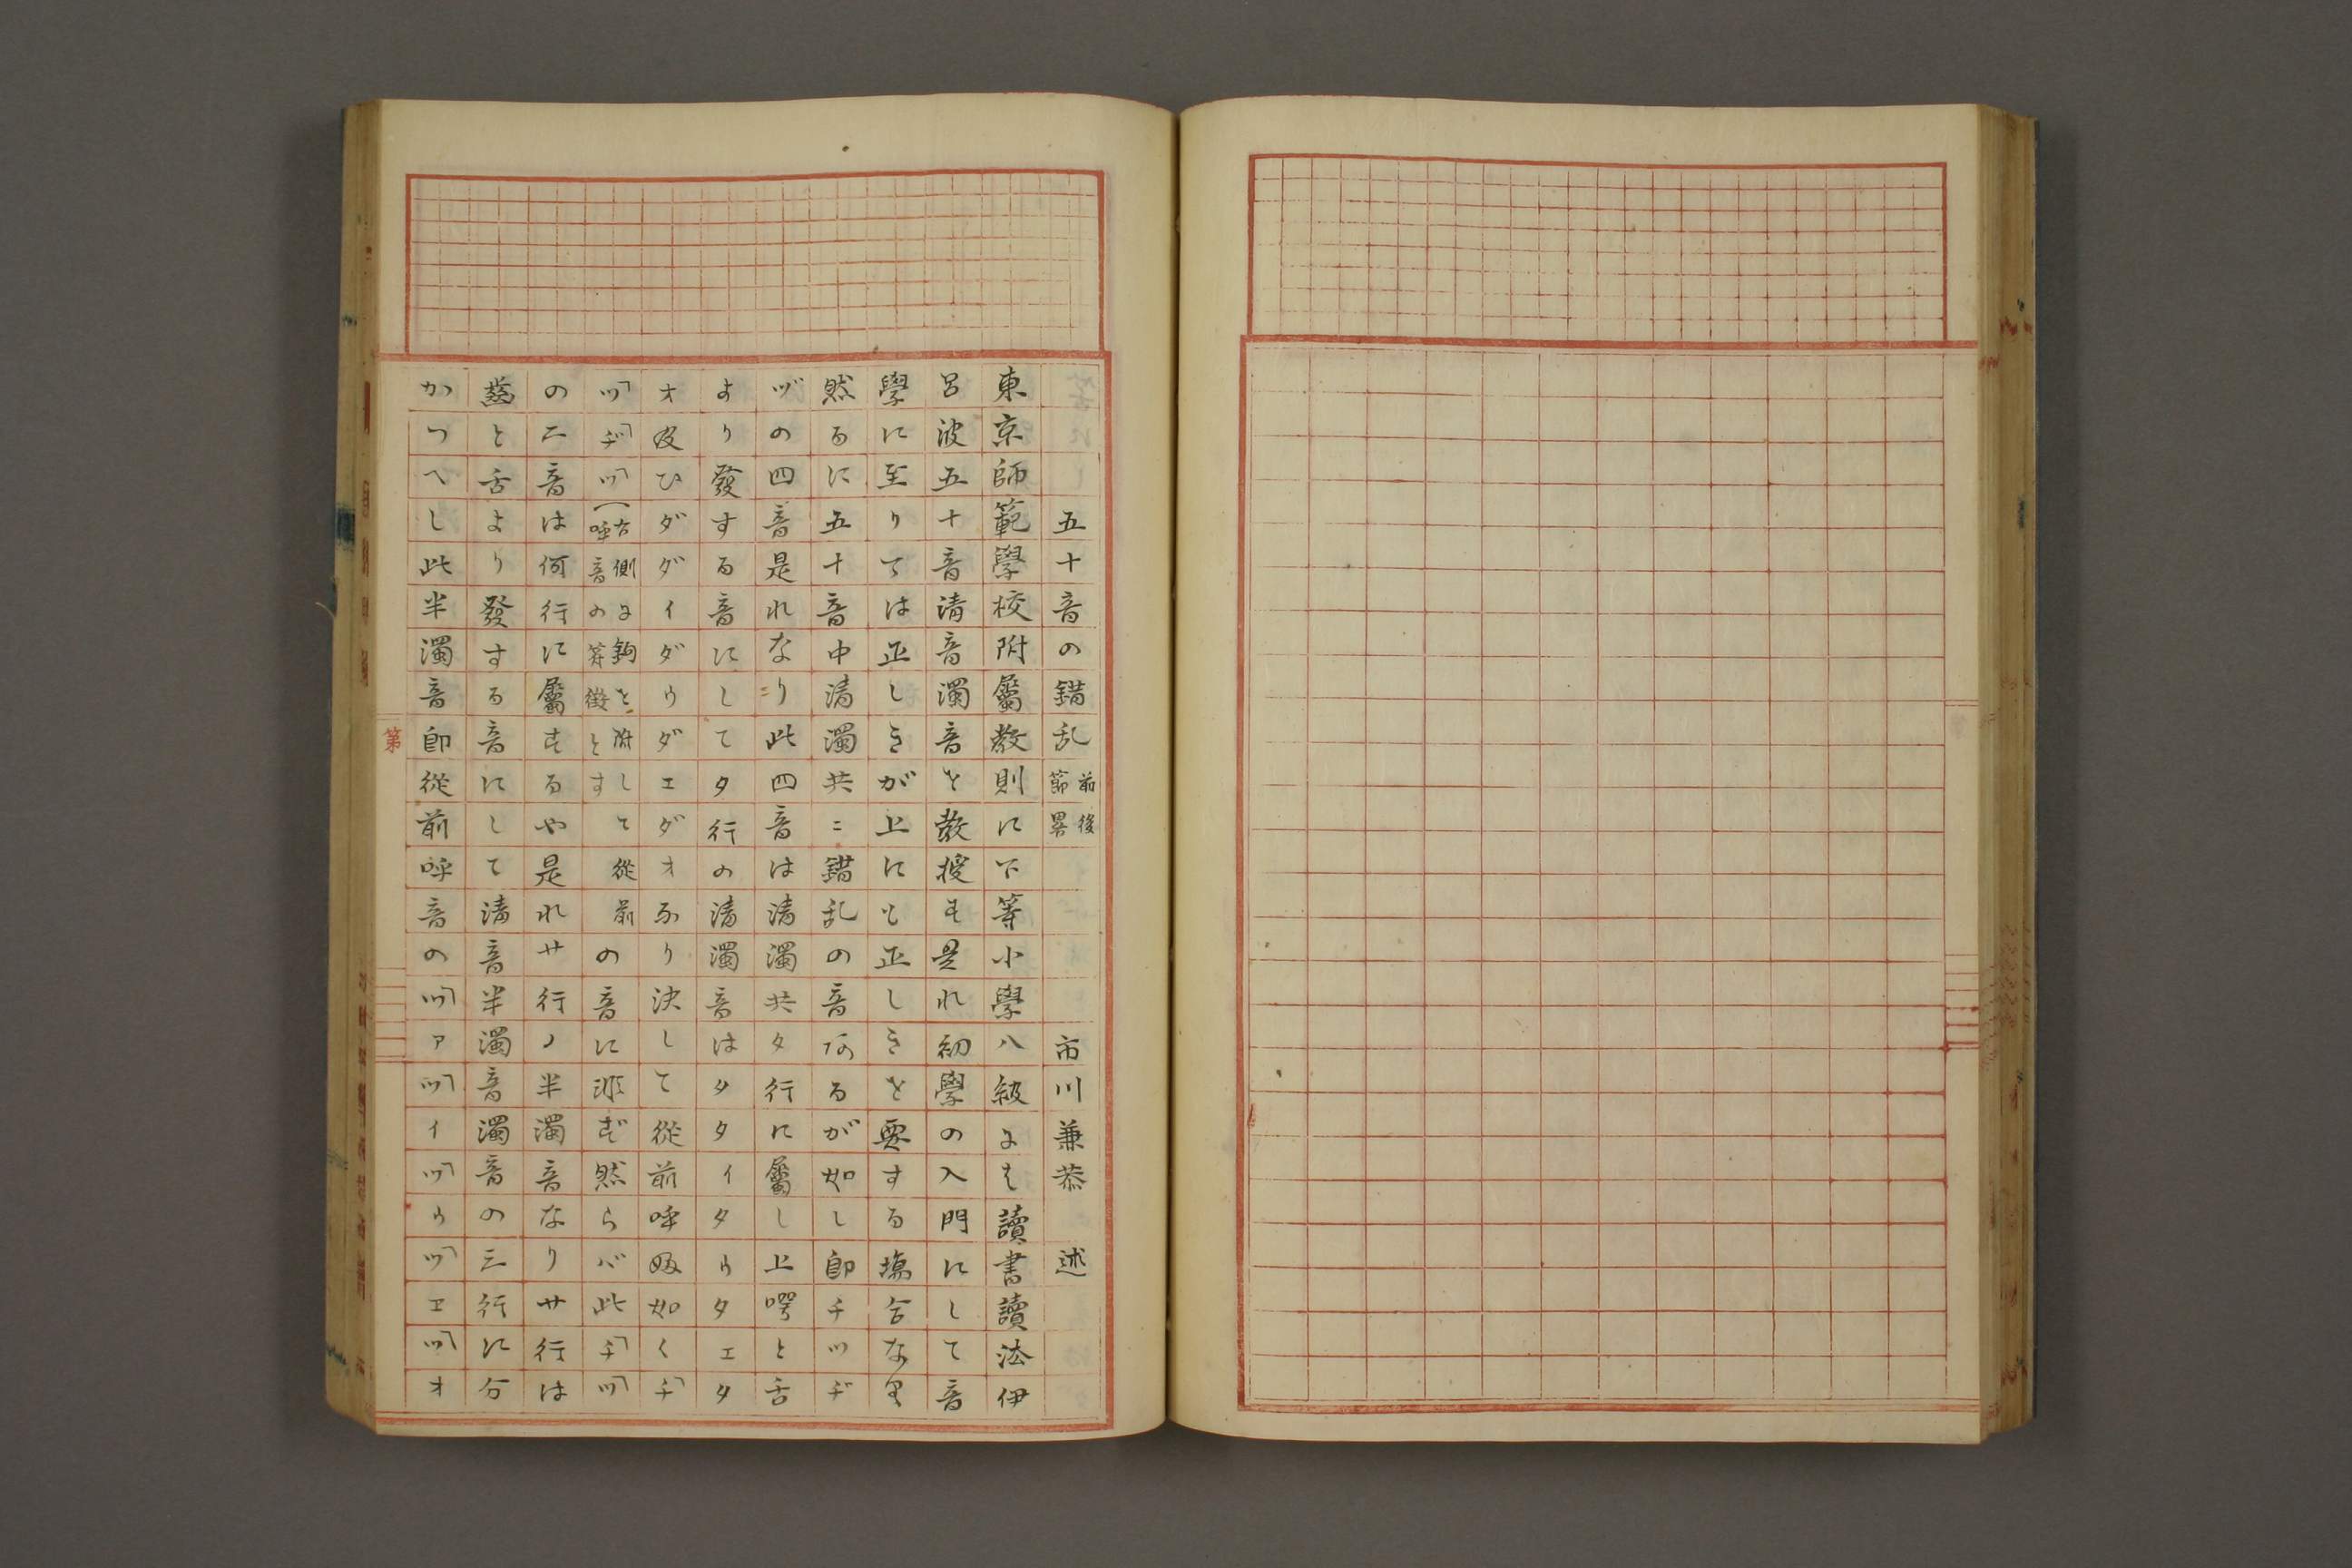 五十音の錯乱 前後節畧 市川兼恭 述
東京師範學校附屬教則に下等小學八級には讀書讀法伊
呂波五十音清音濁音を教授す是れ初學の入門にして音
學に至りては正しきが上にも正しきを要する塲合なり
然るに五十音中清濁共ニ錯乱の音あるが如し即チツヂ
ヅの四音是れなり此四音は清濁共タ行に屬し上咢と舌
より發する音にしてタ行の清濁音はタタイタウタエタ
オ及ひダダイダウダエダオなり決して從前呼做如くチ「
ツ「ヂ「ヅ「(右側に鉤を附して從前呼音の符徴とす の音に非ず然らバ此チ「ツ「
の二音は何行に屬するや是れサ行ノ半濁音なりサ行は
齒と舌より發する音にして清音半濁音濁音の三行に分
かつへし此半濁音即從前呼音のツ「アツ「イツ「ウツ「エツ「オ
第